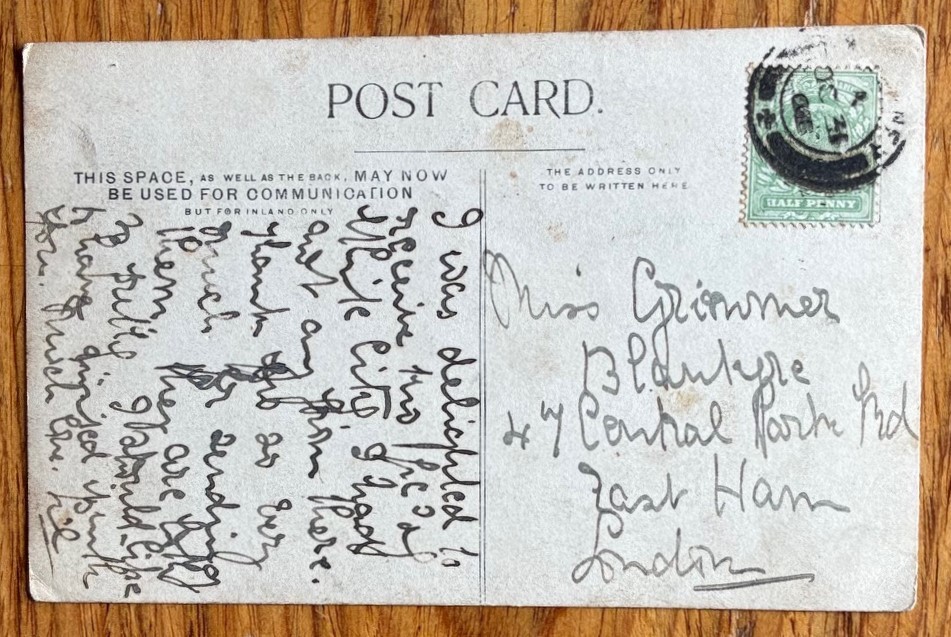 POST CARD.
THIS SPACE, AS WELL AS THE BACK, MAY NOW
BE USED FOR COMMUNICATION
BUT FOR INLAND ONLY
THE ADDRESS ONLY
TO BE WRITTEN HERE.
HALF PENNY
I was delighted to
receive two P.C's of
White City I had
not any from there.
Thank you so very
much for sending
them they are very
I should like
to have
you. Much love.
Miss Grimmer
47 Central Park Rd
East Ham
London